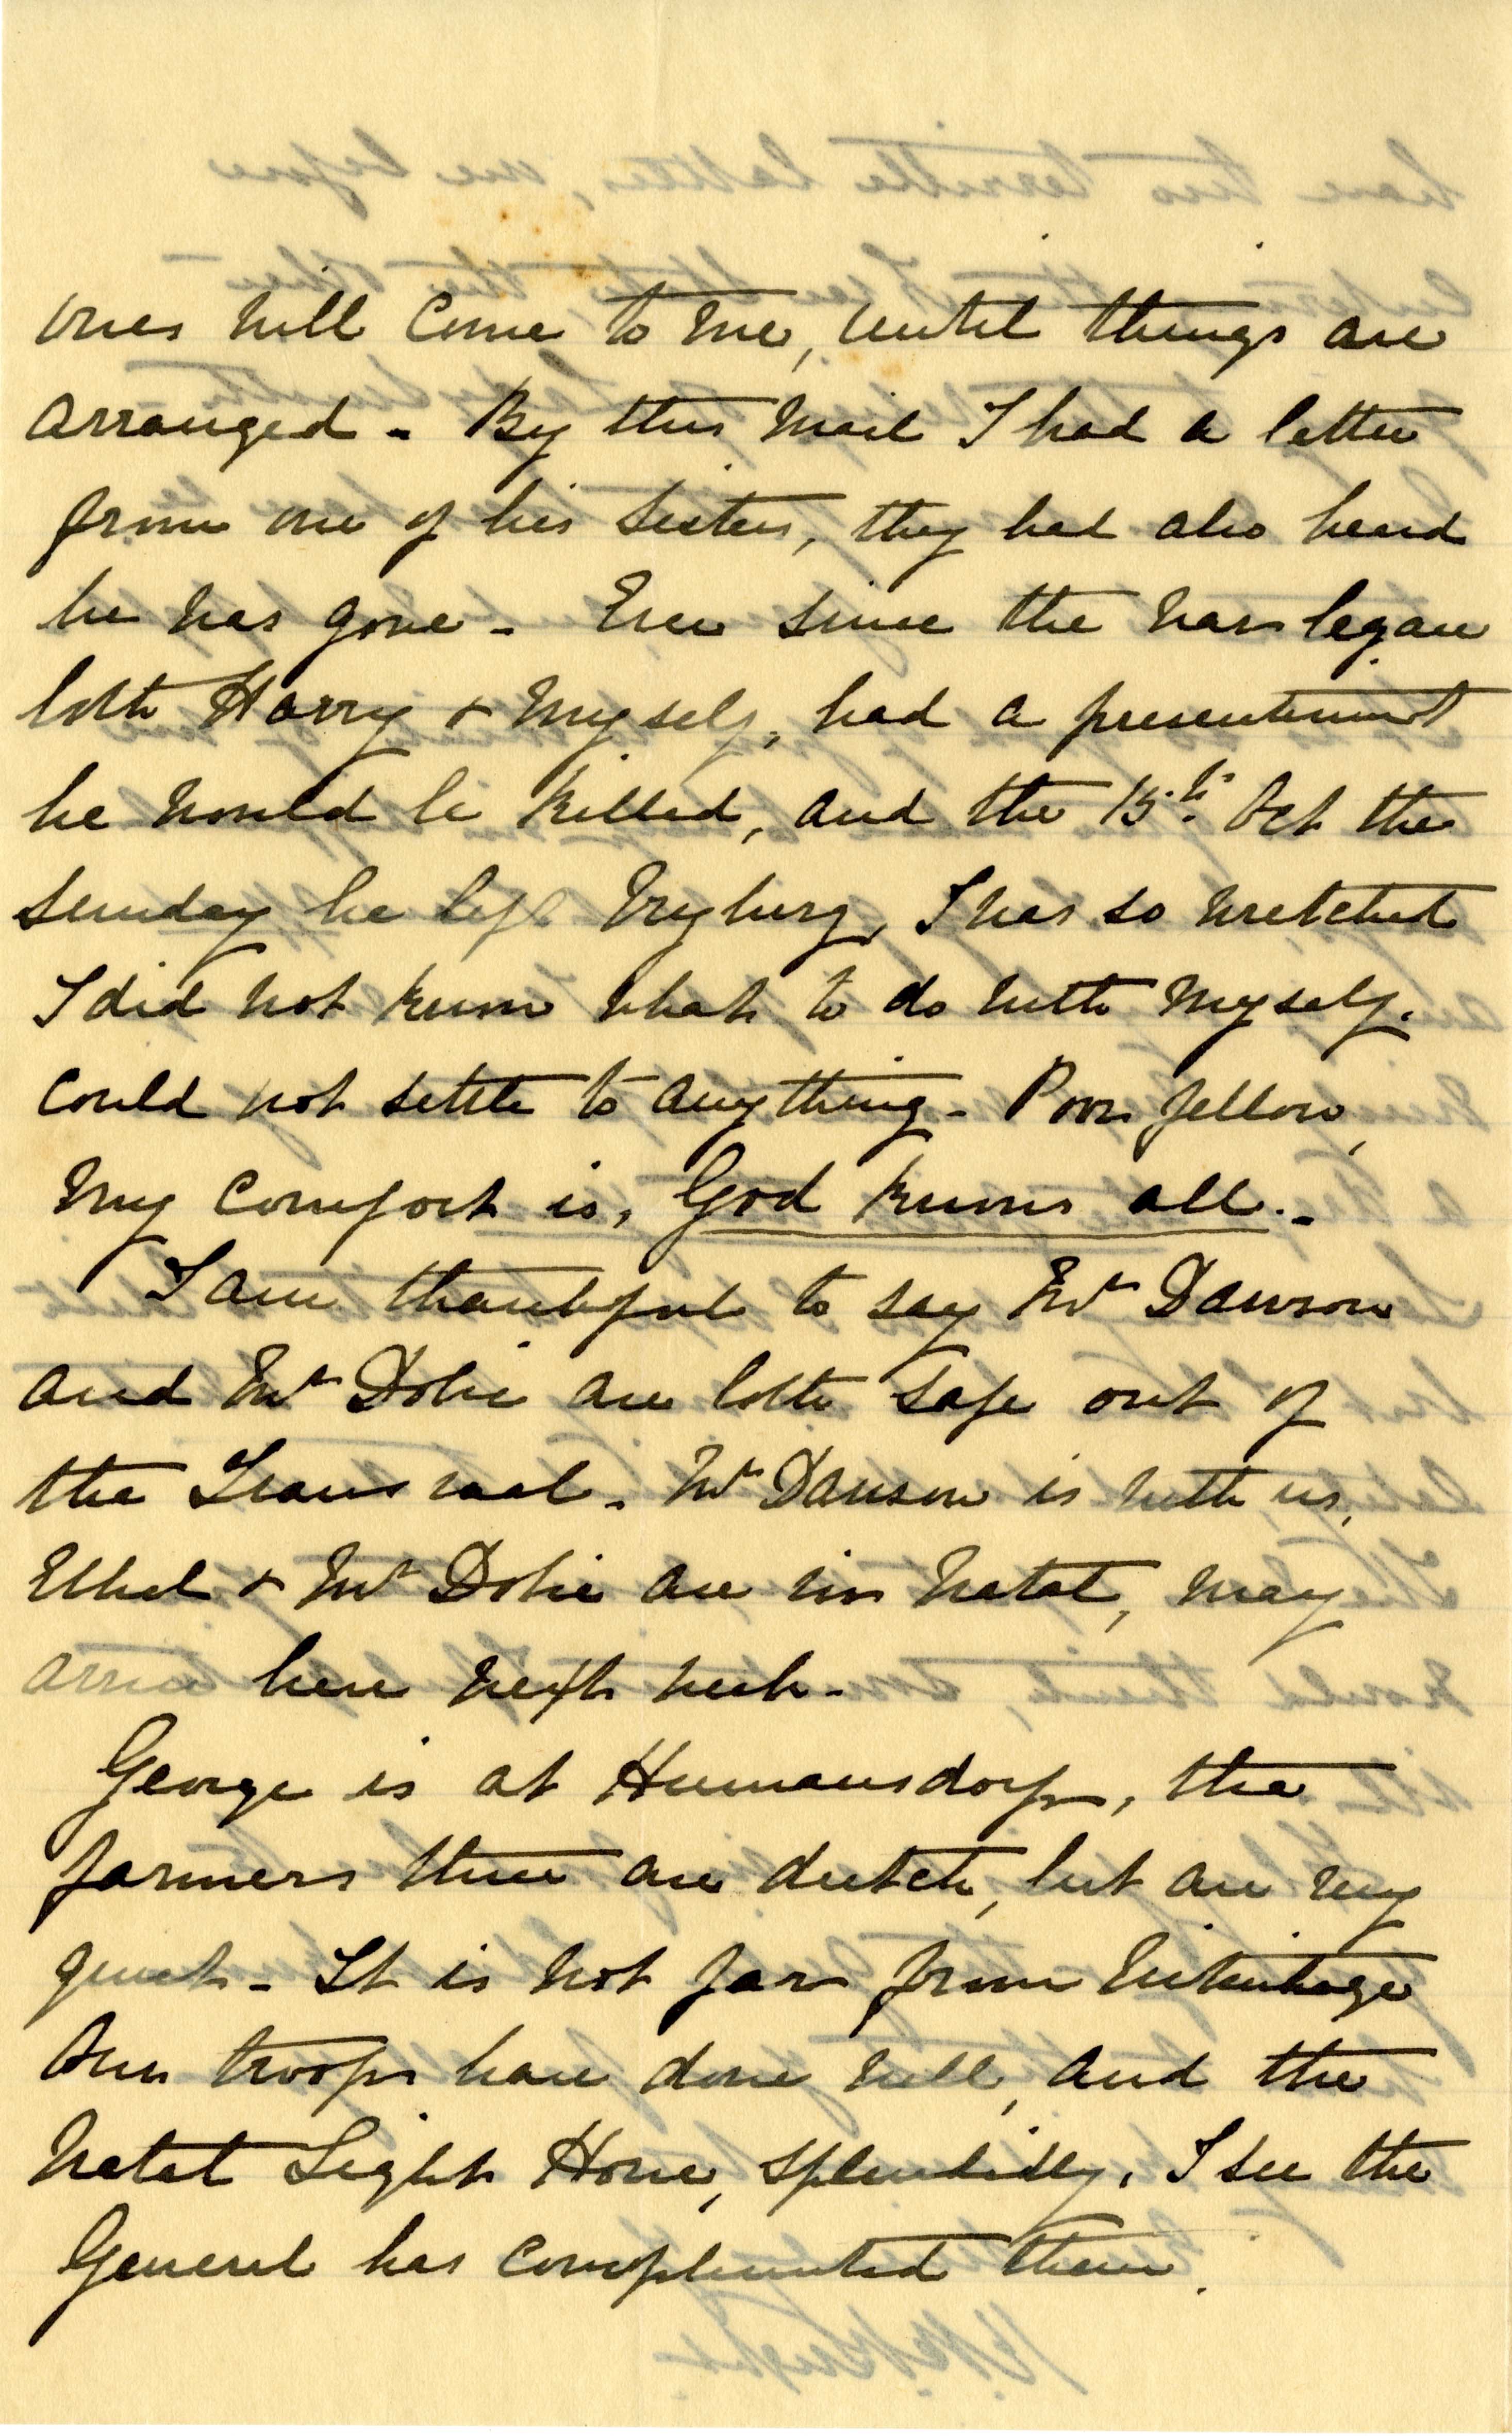 ones will come to me, until things are
arranged - By this Mail I had a letter
from one of his Sisters, they had also heard
he was gone - Ever since the war began
both Harry & Myself, had a presentiment
he would be Killed, and the 15th. Oct the
Sunday he left Vryburg, I was so wretched
I did not know what to do with Myself.
Could not settle to anything - Poor fellow,
My comfort is, God knows all. -
I am thankful to say Mr Dawson
and Mr Dobie are both safe out of
the Transvaal - Mr Dawson is with us,
Ethel & Mr Dobie are in Natal, may
arrive here next week -
George is at Humansdorp, the
farmers there are dutch, but are very
quiet - It is not far from Uitenhage
Our troops have done well, and the
Natal Light Horse, splendidly, I see the
General has complimented them.